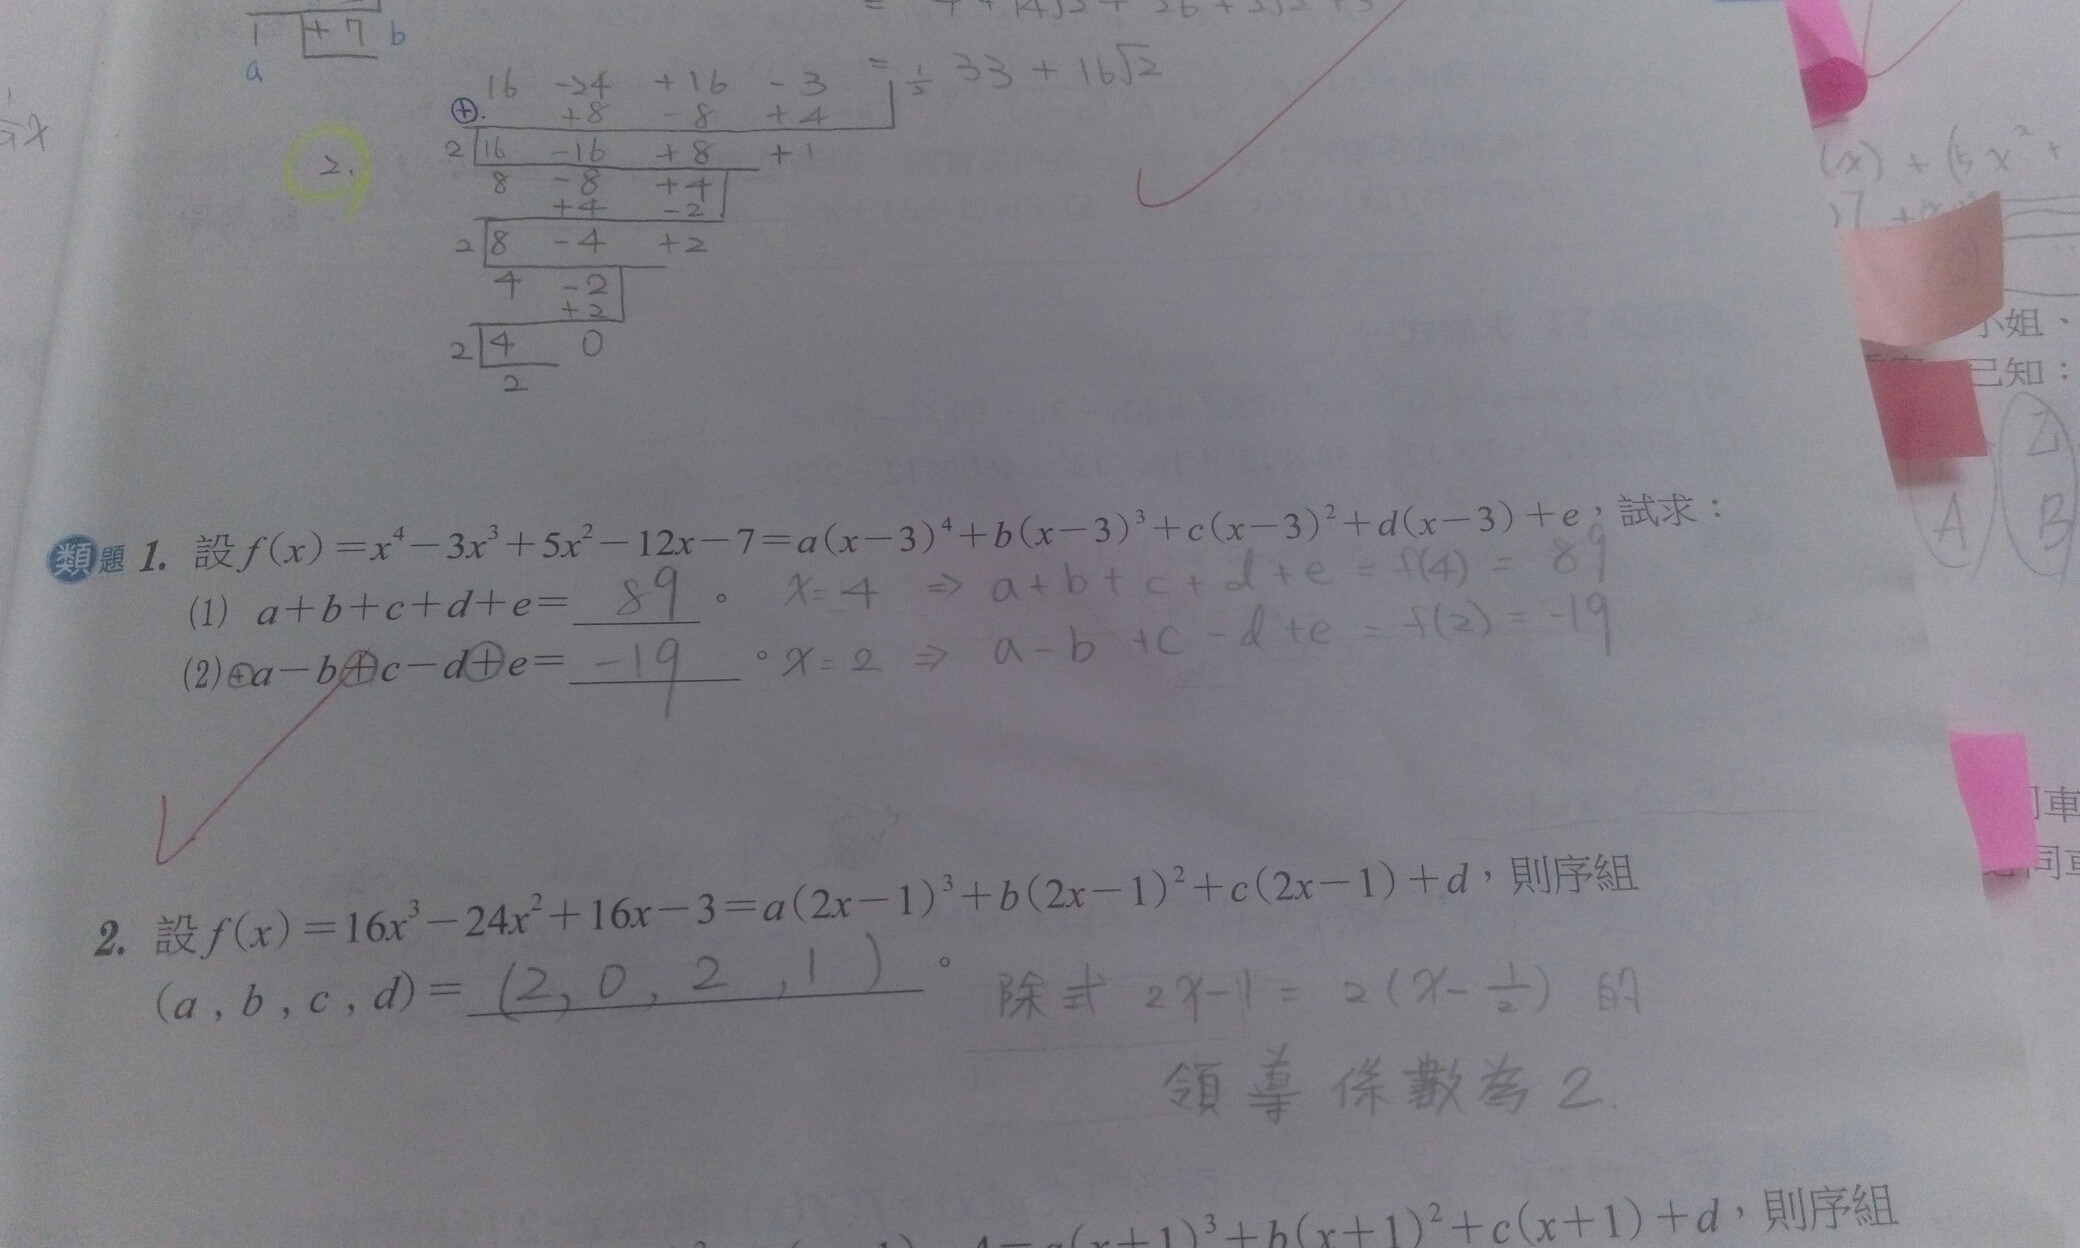 1 +7 b
a
= 1/2 33 + 16√2
2.
16 -24 +16 -3
⊕. +8 -8 +4
2 16 -16 +8 +1
8 -8 +4
+4 -2
2 8 -4 +2
4 -2
+2
2 4 0
2
類題 1. 設f(x)=x⁴-3x³+5x²-12x-7=a(x-3)⁴+b(x-3)³+c(x-3)²+d(x-3)+e，試求：
(1) a+b+c+d+e= 89 。 x=4 ⇒ a+b+c+d+e = f(4) = 89
(2)⊕a-b⊕c-d⊕e= -19 。 x=2 ⇒ a-b+c-d+e = f(2) = -19
2. 設f(x)=16x³-24x²+16x-3=a(2x-1)³+b(2x-1)²+c(2x-1)+d，則序組
(a,b,c,d)= (2,0,2,1) 。 除式 2x-1 = 2(x-1/2) 的
領導係數為2.
(x+1)³+b(x+1)²+c(x+1)+d，則序組
(x) + (5x² +
小姐、
已知：
A
乙
B
車
同車